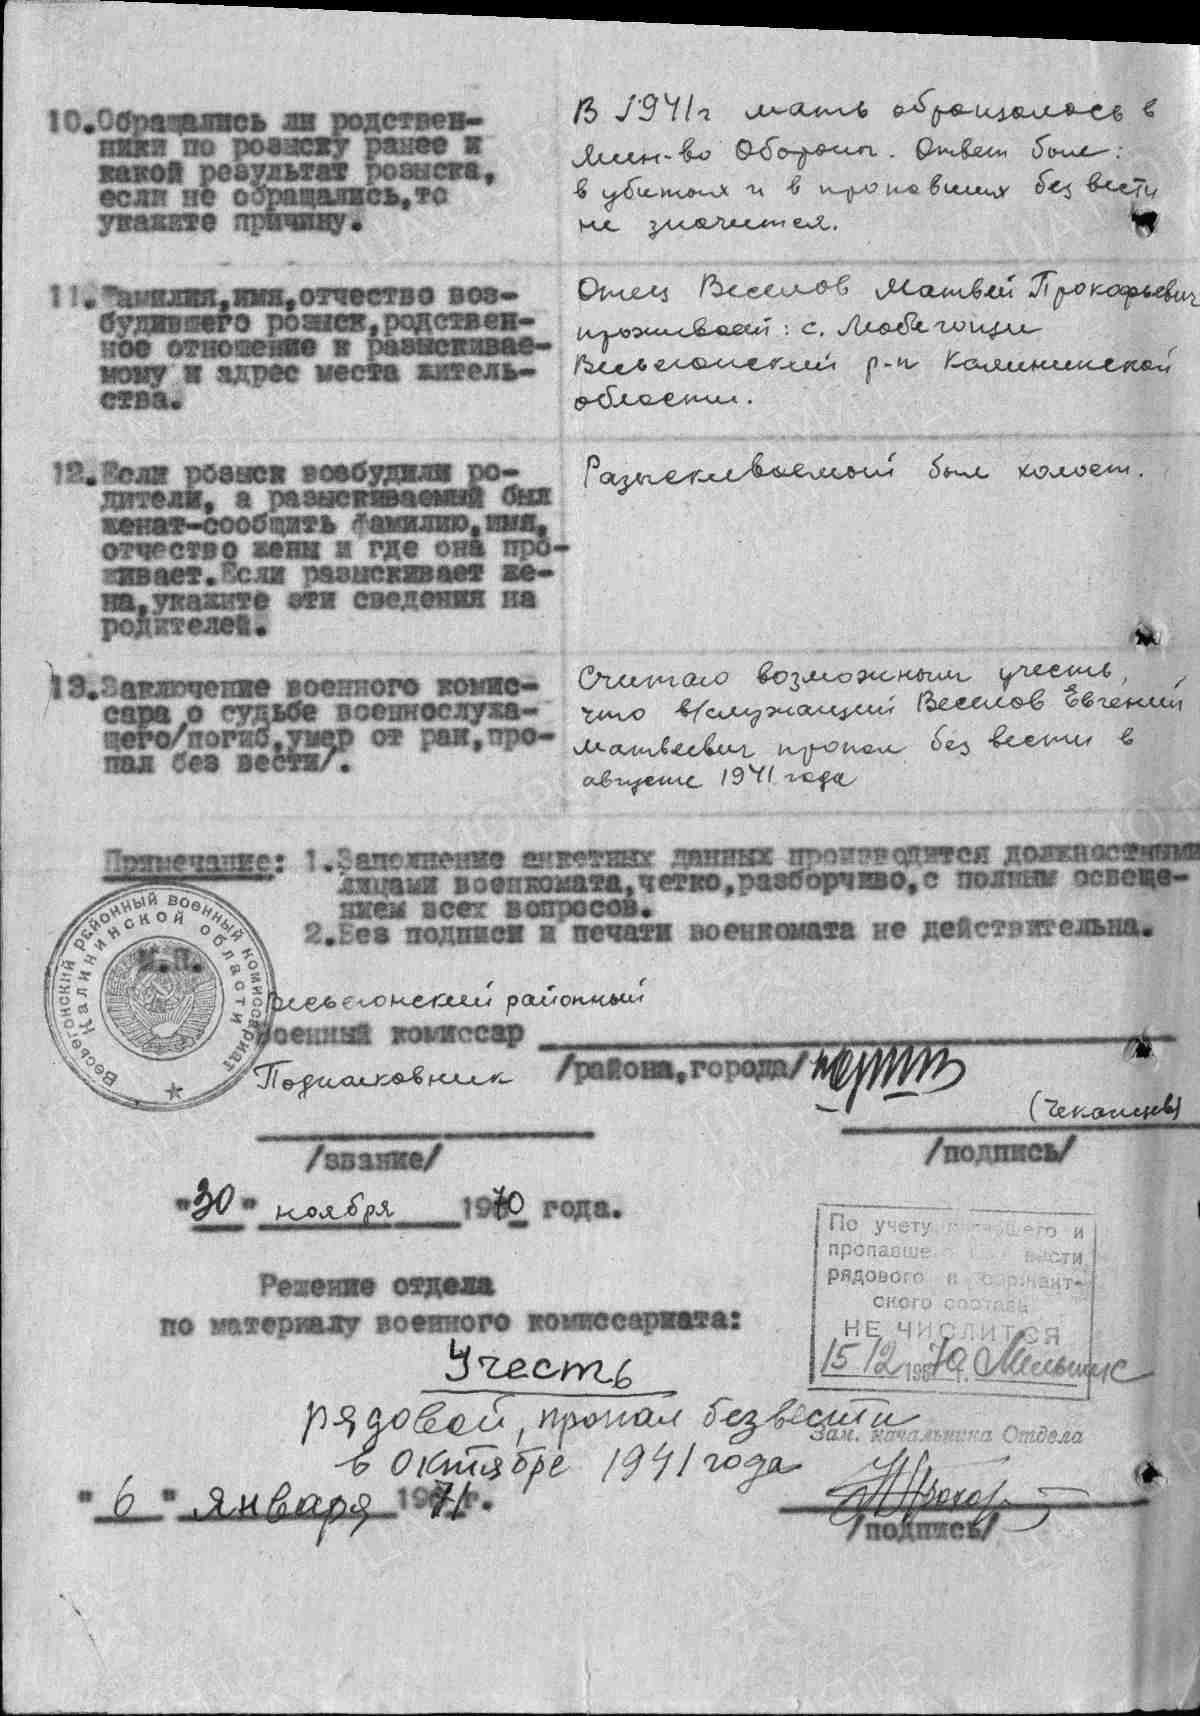 10. Обращались ли родствен-
ники по розыску ранее и
какой результат розыска,
если не обращались, то
укажите причину.
В 1941г мать обращалась в
Мин-во Обороны. Ответ был:
в убитых и в пропавших без вести
не значится.
11. Фамилия, имя, отчество воз-
будившего розыск, родствен-
ное отношение к разыскивае-
мому и адрес места житель-
ства.
Отец Веселов Матвей Прокофьевич
проживает: с. Любегощи
Весьегонский р-н Калининской
области.
12. Если розыск возбудили ро-
дители, а разыскиваемый был
женат-сообщить фамилию, имя,
отчество жены и где она про-
живает. Если разыскивает же-
на, укажите эти сведения на
родителей.
Разыскиваемый был холост.
13. Заключение военного комис-
сара о судьбе военнослужа-
щего/погиб, умер от ран, про-
пал без вести/.
Считаю возможным учесть,
что в/служащий Веселов Евгений
Матвеевич пропал без вести в
августе 1941 года
Примечание: 1. Заполнение анкетных данных производится должностными
лицами военкомата, четко, разборчиво, с полным освеще-
нием всех вопросов.
2. Без подписи и печати военкомата не действительна.
М.П.
Весьегонский районный военный комиссариат
Калининской области
Весьегонский районный
Военный комиссар
/района, города/
Подполковник
/звание/
/подпись/
"30" ноября 1970 года.
По учету погибшего и
пропавшего без вести
рядового и сержант-
ского состава
НЕ ЧИСЛИТСЯ
15/12 1970 г.
Решение отдела
по материалу военного комиссариата:
Учесть
рядовой, пропал без вести
в октябре 1941 года
Зам. начальника Отдела
"6" января 1971 г.
/подпись/